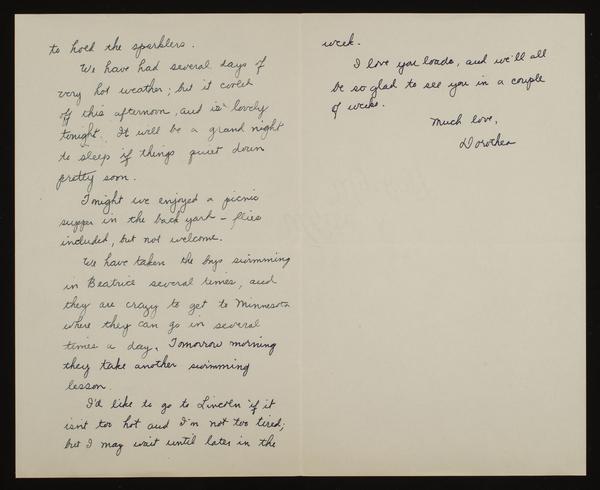 to hold the sparklers.
We have had several days of
very hot weather; but it cooled
off this afternoon, and is lovely
tonight. It will be a grand night
to sleep if things quiet down
pretty soon.
Tonight we enjoyed a picnic
supper in the back yard - flies
included, but not welcome.
We have taken the boys swimming
in Beatrice several times, and
they are crazy to get to Minnesota
where they can go in several
times a day. Tomorrow morning
they take another swimming
lesson.
I'd like to go to Lincoln if it
isn't too hot and I'm not too tired;
but I may wait until later in the
week.
I love you loads, and we'll all
be so glad to see you in a couple
of weeks.
Much love,
Dorothea